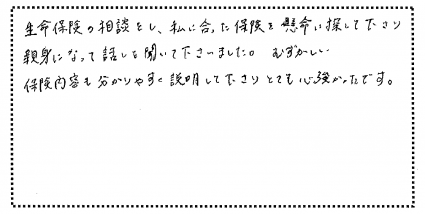 生命保険の相談をし、私に合った保険を懸命に探して下さり
親身になって話しを聞いて下さいました。 むずかしい
保険内容も分かりやすく説明して下さりとても心強かったです。